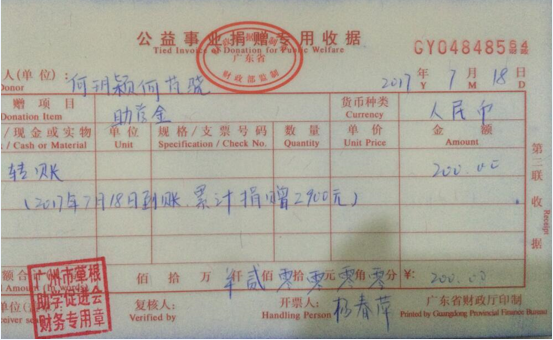 公益事业捐赠专用收据
Tied Invoice of Donation for Public Welfare
广东省
财政部监制
GY048485
人(单位):
Donor
2017 年 7 月 18 日
Y M D
赠项目
Donation Item
助学金
货币种类
Currency
人民币
/现金或实物
/Cash or Material
单位
Unit
规格/支票号码
Specification / Check No.
数量
Quantity
单价
Unit Price
金额
Amount
转账
200.00
(2017年7月18日到账,累计捐赠2900元)
第二联收据
Receipt
额合计
佰拾万仟贰佰零拾零元零角零分 ¥: 200.00
广州市草根
助学促进会
财务专用章
单位
复核人:
Verified by
开票人:
Handling Person
杨春萍
广东省财政厅印制
Printed by Guangdong Provincial Finance Bureau